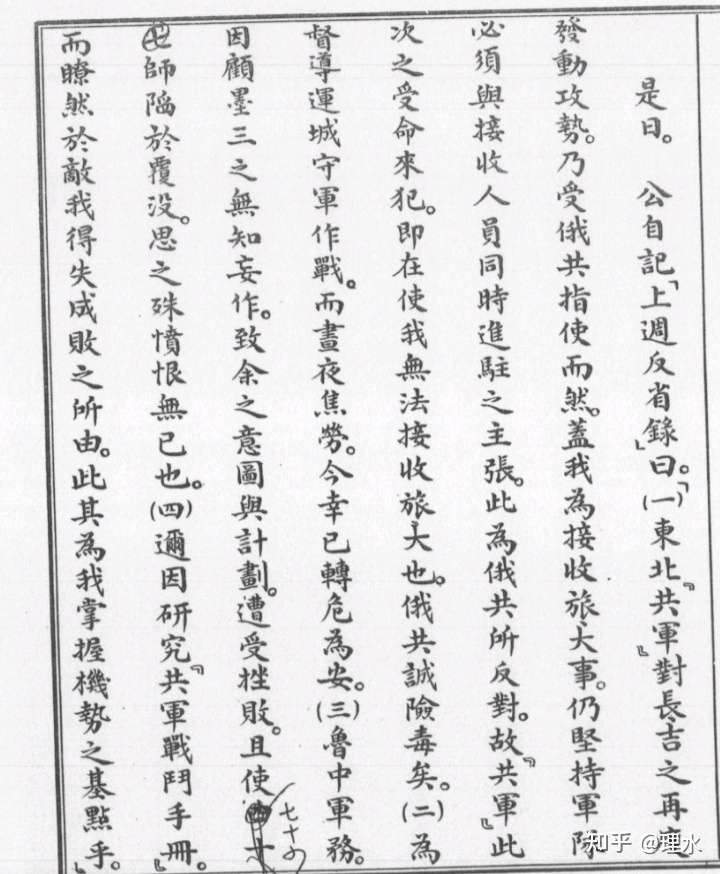 是日。　公自記「上週反省錄」曰。「(一)東北『共軍』對長、吉之再度
發動攻勢。乃受俄共指使而然。蓋我為接收旅、大事。仍堅持軍隊
必須與接收人員同時進駐之主張。此為俄共所反對。故『共軍』此
次之受命來犯。即在使我無法接收旅、大也。俄共誠險毒矣。(二)為
督導運城守軍作戰。而晝夜焦勞。今幸已轉危為安。(三)魯中軍務。
因顧墨三之無知妄作。致余之意圖與計劃。遭受挫敗。且使十
七十四
七師陷於覆沒。思之殊憤恨無已也。(四)邇因研究『共軍戰鬥手冊』。
而瞭然於敵我得失成敗之所由。此其為我掌握機勢之基點乎。」
知乎 @理水